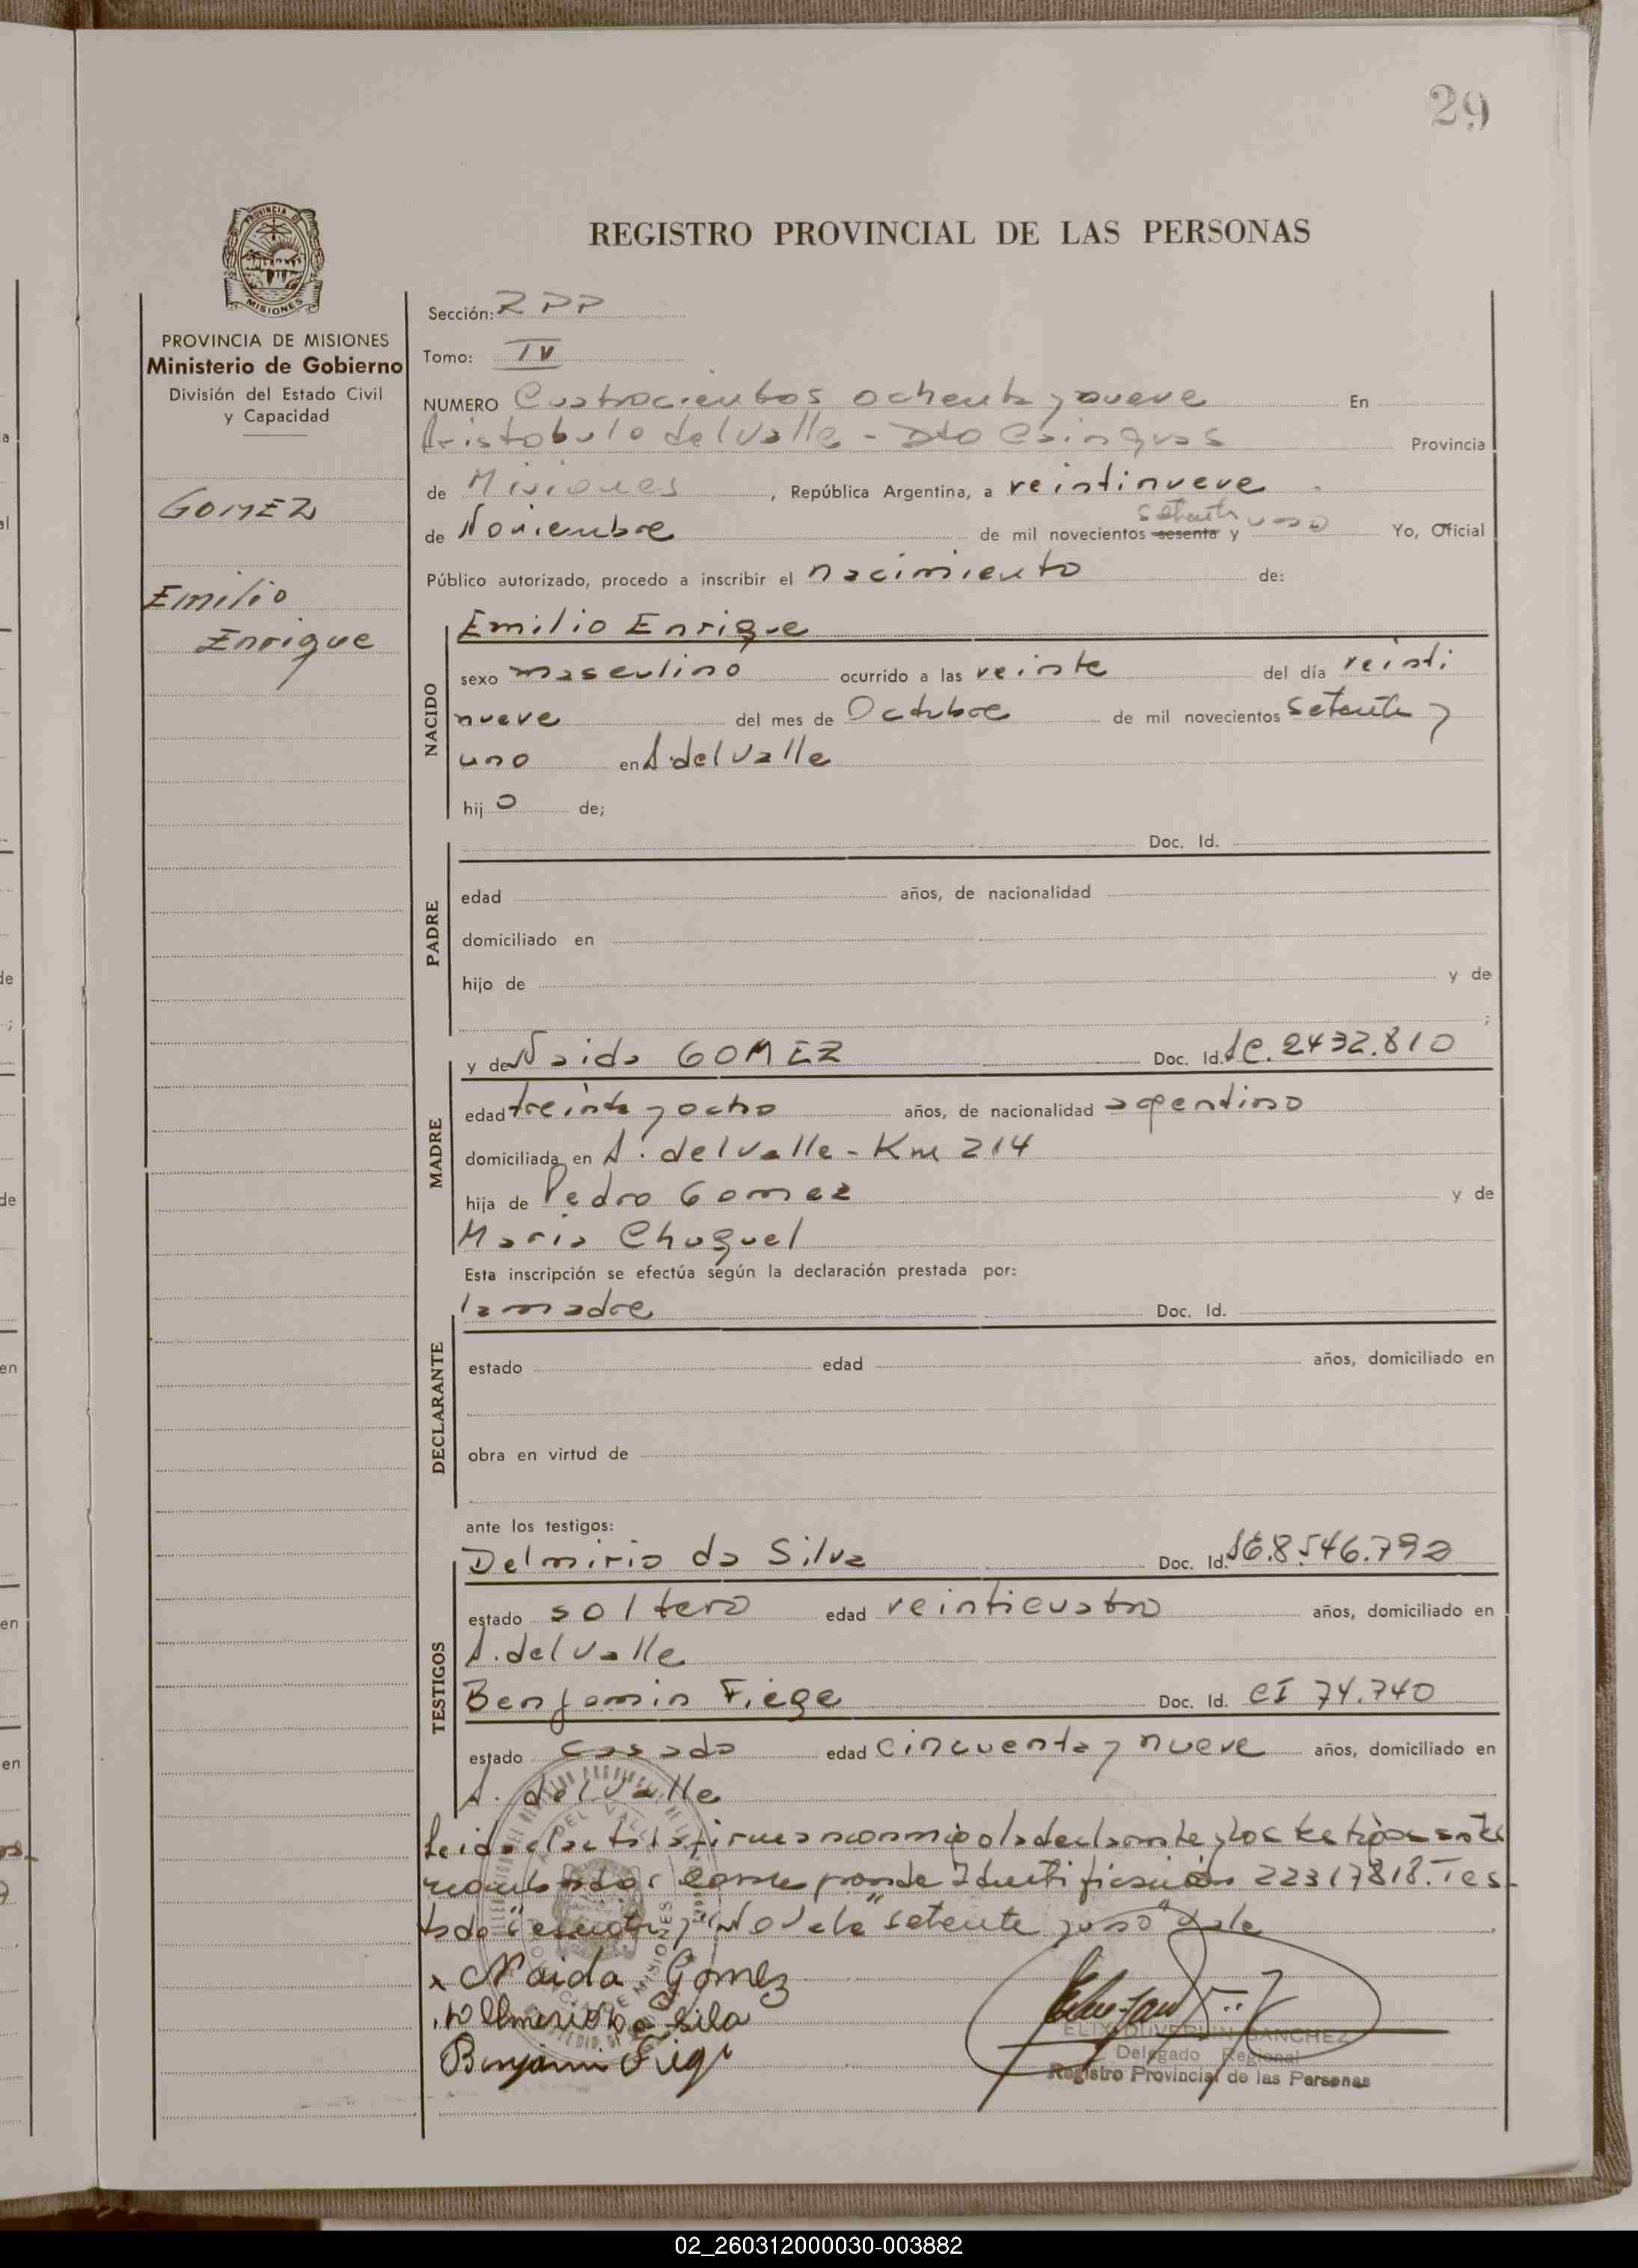 29
REGISTRO PROVINCIAL DE LAS PERSONAS
PROVINCIA DE MISIONES
Ministerio de Gobierno
División del Estado Civil
y Capacidad
GOMEZ
Emilio
Enrique
Sección: RPP
Tomo: IV
NUMERO Cuatrocientos ochenta y nueve En
Aristobulo del Valle - Dto Cainguas Provincia
de Misiones, República Argentina, a veintinueve
setenta
de Noviembre de mil novecientos sesenta y uno Yo, Oficial
Público autorizado, procedo a inscribir el nacimiento de:
NACIDO
Emilio Enrique
sexo masculino ocurrido a las veinte del día veinti
nueve del mes de Octubre de mil novecientos setenta y
uno en A. del Valle
hij o de;
PADRE
Doc. Id.
edad años, de nacionalidad
domiciliado en
hijo de y de
;
MADRE
y de Naida GOMEZ Doc. Id. LC. 2432.810
edad treinta y ocho años, de nacionalidad argentino
domiciliada en A. del Valle - Km 214
hija de Pedro Gomez y de
Maria Chuquel
Esta inscripción se efectúa según la declaración prestada por:
DECLARANTE
la madre Doc. Id.
estado edad años, domiciliado en
obra en virtud de
ante los testigos:
TESTIGOS
Delmirio da Silva Doc. Id. 8.546.792
estado soltero edad veinticuatro años, domiciliado en
A. del Valle
Benjamin Fiege Doc. Id. CI 74.740
estado casado edad cincuenta y nueve años, domiciliado en
A. del Valle
Leida el acta la firman conmigo la declarante y los testigos
corresponde Identificación 22317818. Tes
tado "setente y uno" vale
x Naida Gomez
Benjamin Fiege
ELIX DUVERLIN SANCHEZ
Delegado Regional
Registro Provincial de las Personas
02_260312000030-003882